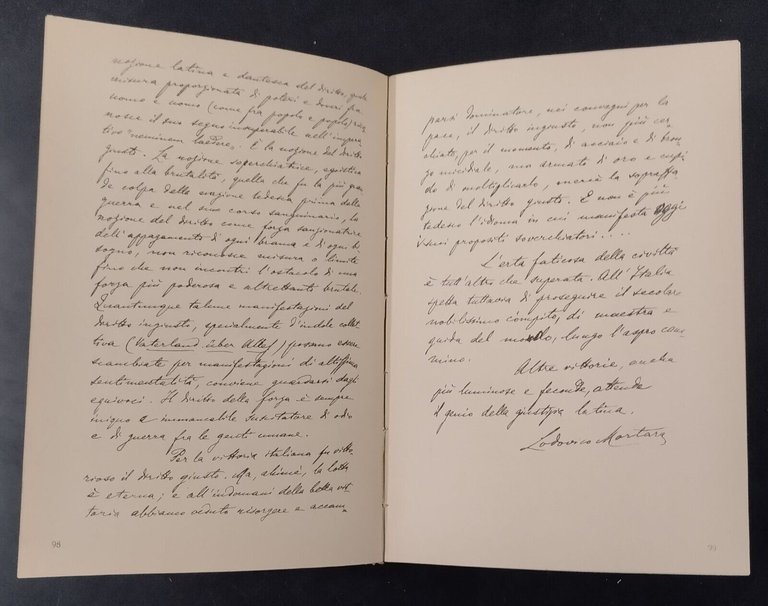 nozione latina e dantesca del diritto, quale
misura proporzionata di poteri e doveri fra
uomo e uomo (come fra popolo e popolo) rico-
nosce il suo segno insuperabile nell'impera-
tivo "neminem laedere". È la nozione del diritto
giusto. La nozione soverchiatrice, egoistica
fino alla brutalità, quella che fu la più gran-
de colpa della nazione tedesca prima della
guerra e nel suo corso sanguinario, la
nozione del diritto come forza sanzionatrice
dell'appagamento di ogni brama e di ogni bi-
sogno, non riconosce misura o limite
fino che non incontri l'ostacolo di una
forza più poderosa e altrettanto brutale.
Quantunque talune manifestazioni del
diritto ingiusto, specialmente d'indole collet-
tiva (Vaterland über Alles) possano essere
scambiate per manifestazioni di altissima
sentimentalità, conviene guardarsi dagli
equivoci. Il diritto della forza è sempre
iniquo e immancabile suscitatore di odio
e di guerra fra le genti umane.
Per la vittoria italiana fu vitto-
rioso il diritto giusto. Ma, ahimè, la lotta
è eterna; e all'indomani della bella vit-
toria abbiamo veduto risorgere e accam-
98
parsi dominatore, nei convegni per la
pace, il diritto ingiusto, non più cer-
chiato, per il momento, di acciaio e di bron-
zo micidiale, ma armato di oro e cupi-
do di moltiplicarlo, mercè la sopraffa-
zione del diritto giusto. E non è più
tedesco l'idioma in cui manifesta oggi
i suoi propositi soverchiatori....
L'erta faticosa della civiltà
è tutt'altro che superata. All'Italia
spetta tuttavia di proseguire il secolare
nobilissimo compito, di maestra e
guida del mondo, lungo l'aspro cam-
mino.
Altre vittorie, anche
più luminose e feconde, attende
il genio della giustizia latina.
Lodovico Mortara
99